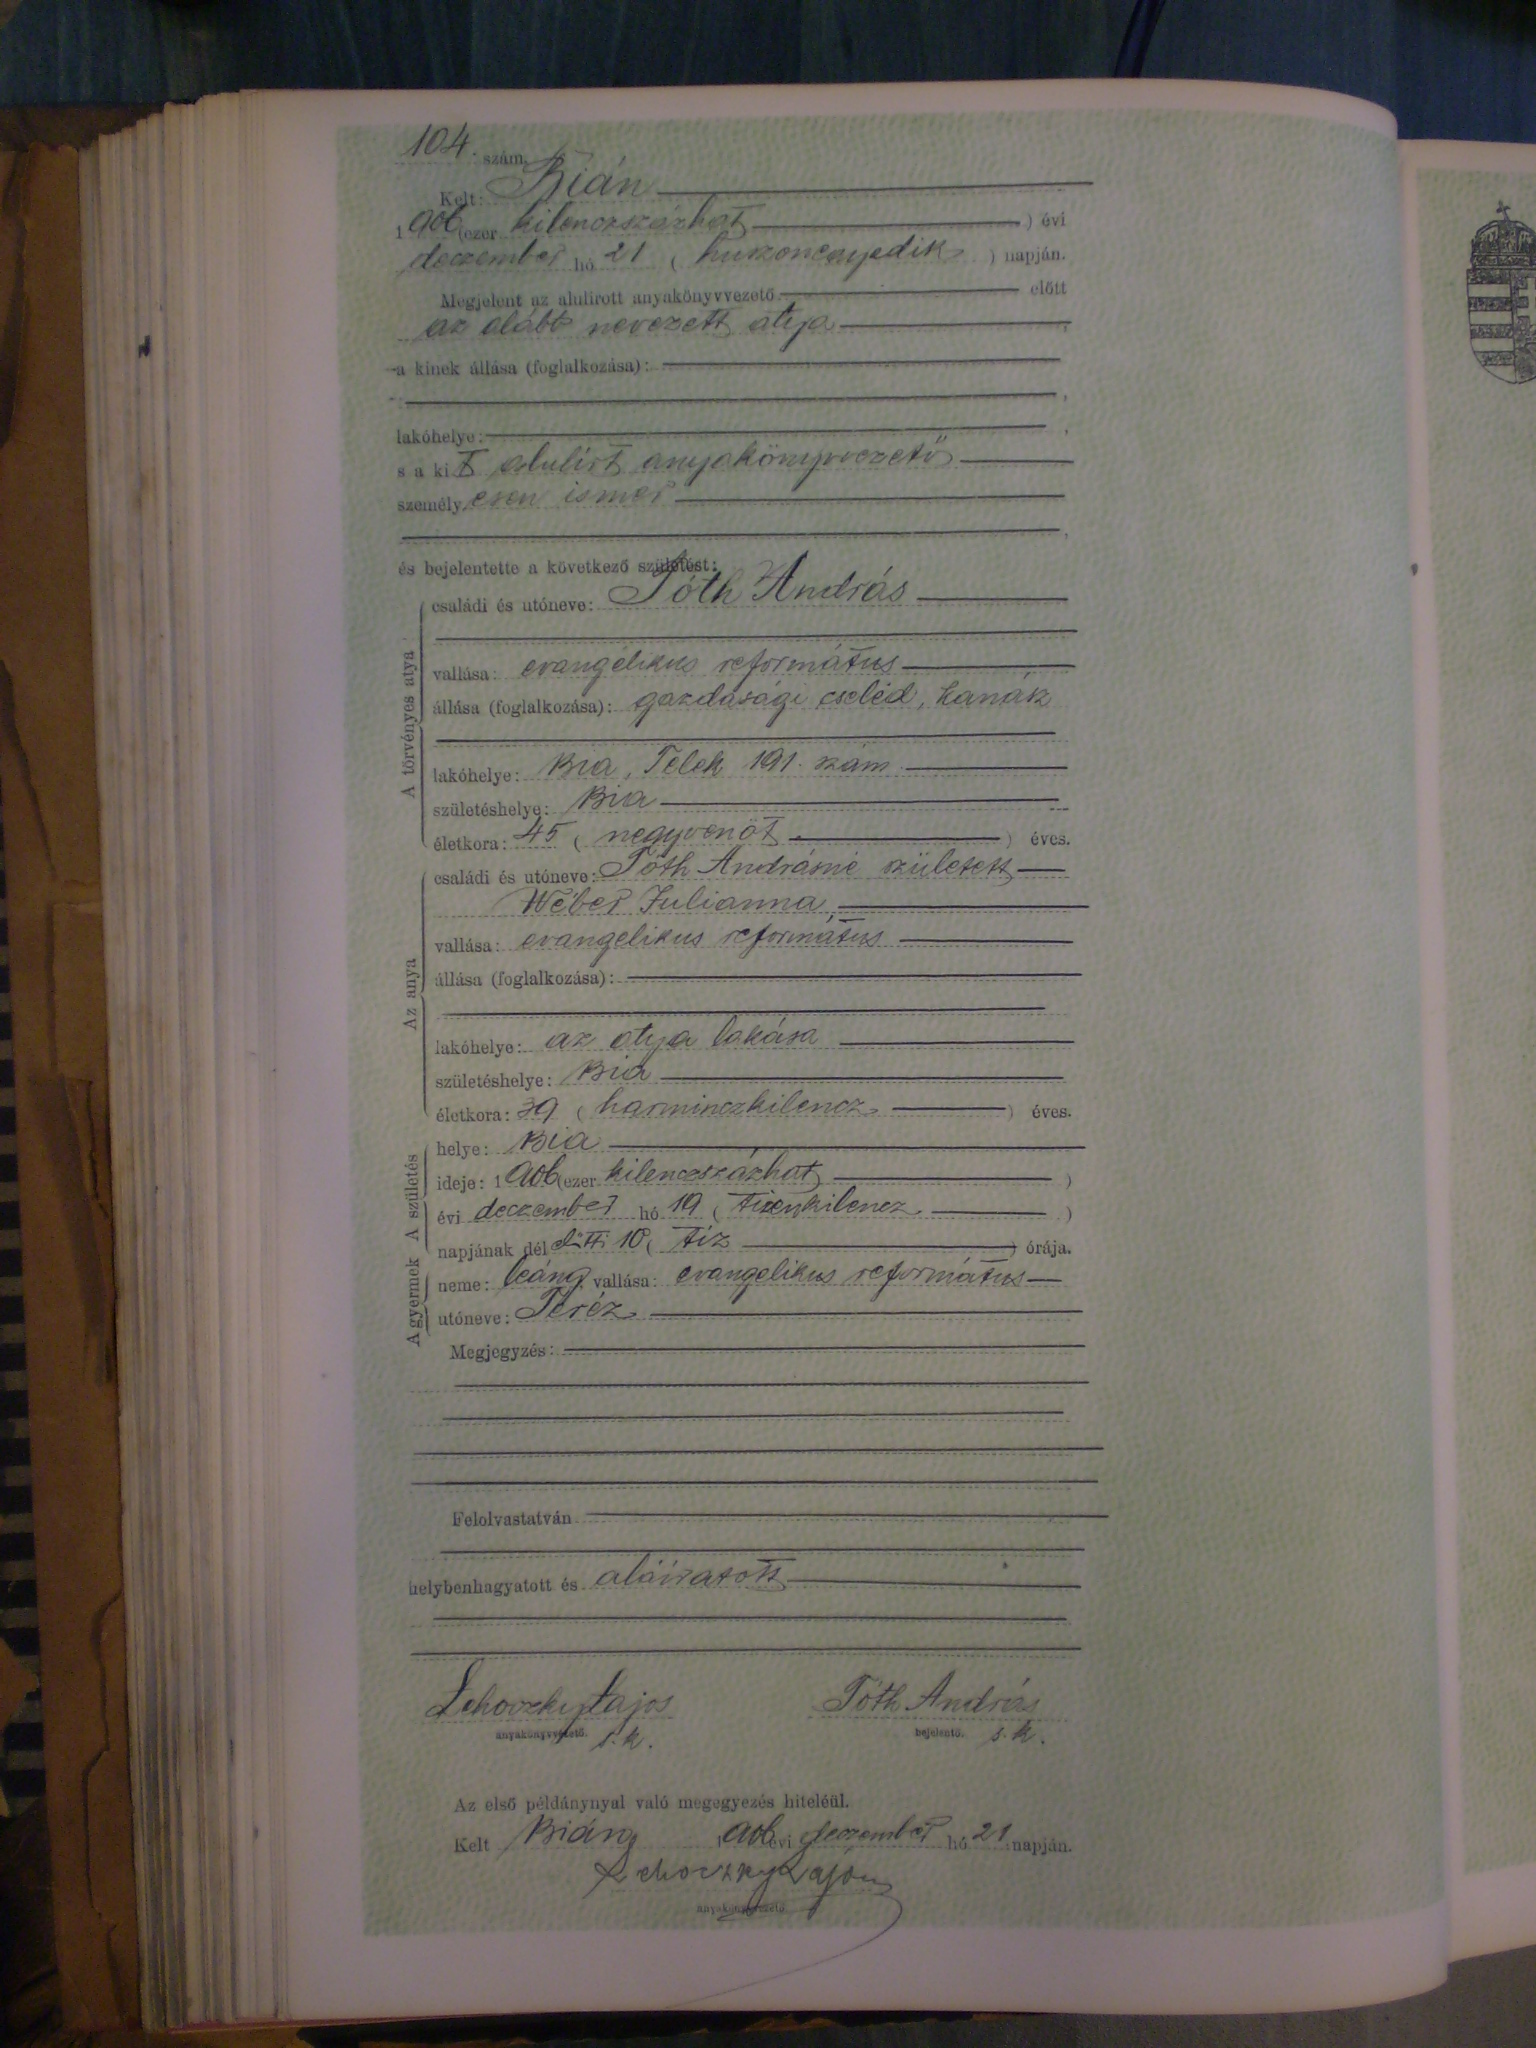 104. szám.
Kelt: Bián
1906 (ezer kilenczszázhat ) évi
deczember hó 21 ( huszonegyedik ) napján.
Megjelent az alulirott anyakönyvvezető előtt
az alább nevezett atya ,
a kinek állása (foglalkozása):
,
lakóhelye: ,
s a kit alulirt anyakönyvvezető
személyesen ismer
,
és bejelentette a következő születést:
A törvényes atya
családi és utóneve: Tóth András
vallása: evangélikus református
állása (foglalkozása): gazdasági cseléd, kanász
lakóhelye: Bia, Telek 191. szám
születéshelye: Bia
életkora: 45 ( negyvenöt ) éves.
Az anya
családi és utóneve: Tóth Andrásné született
Wéber Julianna
vallása: evangelikus református
állása (foglalkozása):
lakóhelye: az atya lakása
születéshelye: Bia
életkora: 39 ( harminczkilencz ) éves.
A születés
helye: Bia
ideje: 1906 (ezer kilenczszázhat )
évi deczember hó 19 ( tizenkilencz )
napjának délelőtti 10 ( tíz ) órája.
A gyermek
neme: leány vallása: evangelikus református
utóneve: Teréz
Megjegyzés:
Felolvastatván
helybenhagyatott és aláiratott
Lehoczky Lajos Tóth András
anyakönyvvezető. s. k. bejelentő. s. k.
Az első példánynyal való megegyezés hiteléül.
Kelt Bián, 1906 évi deczember hó 21 napján.
Lehoczky Lajos
anyakönyvvezető